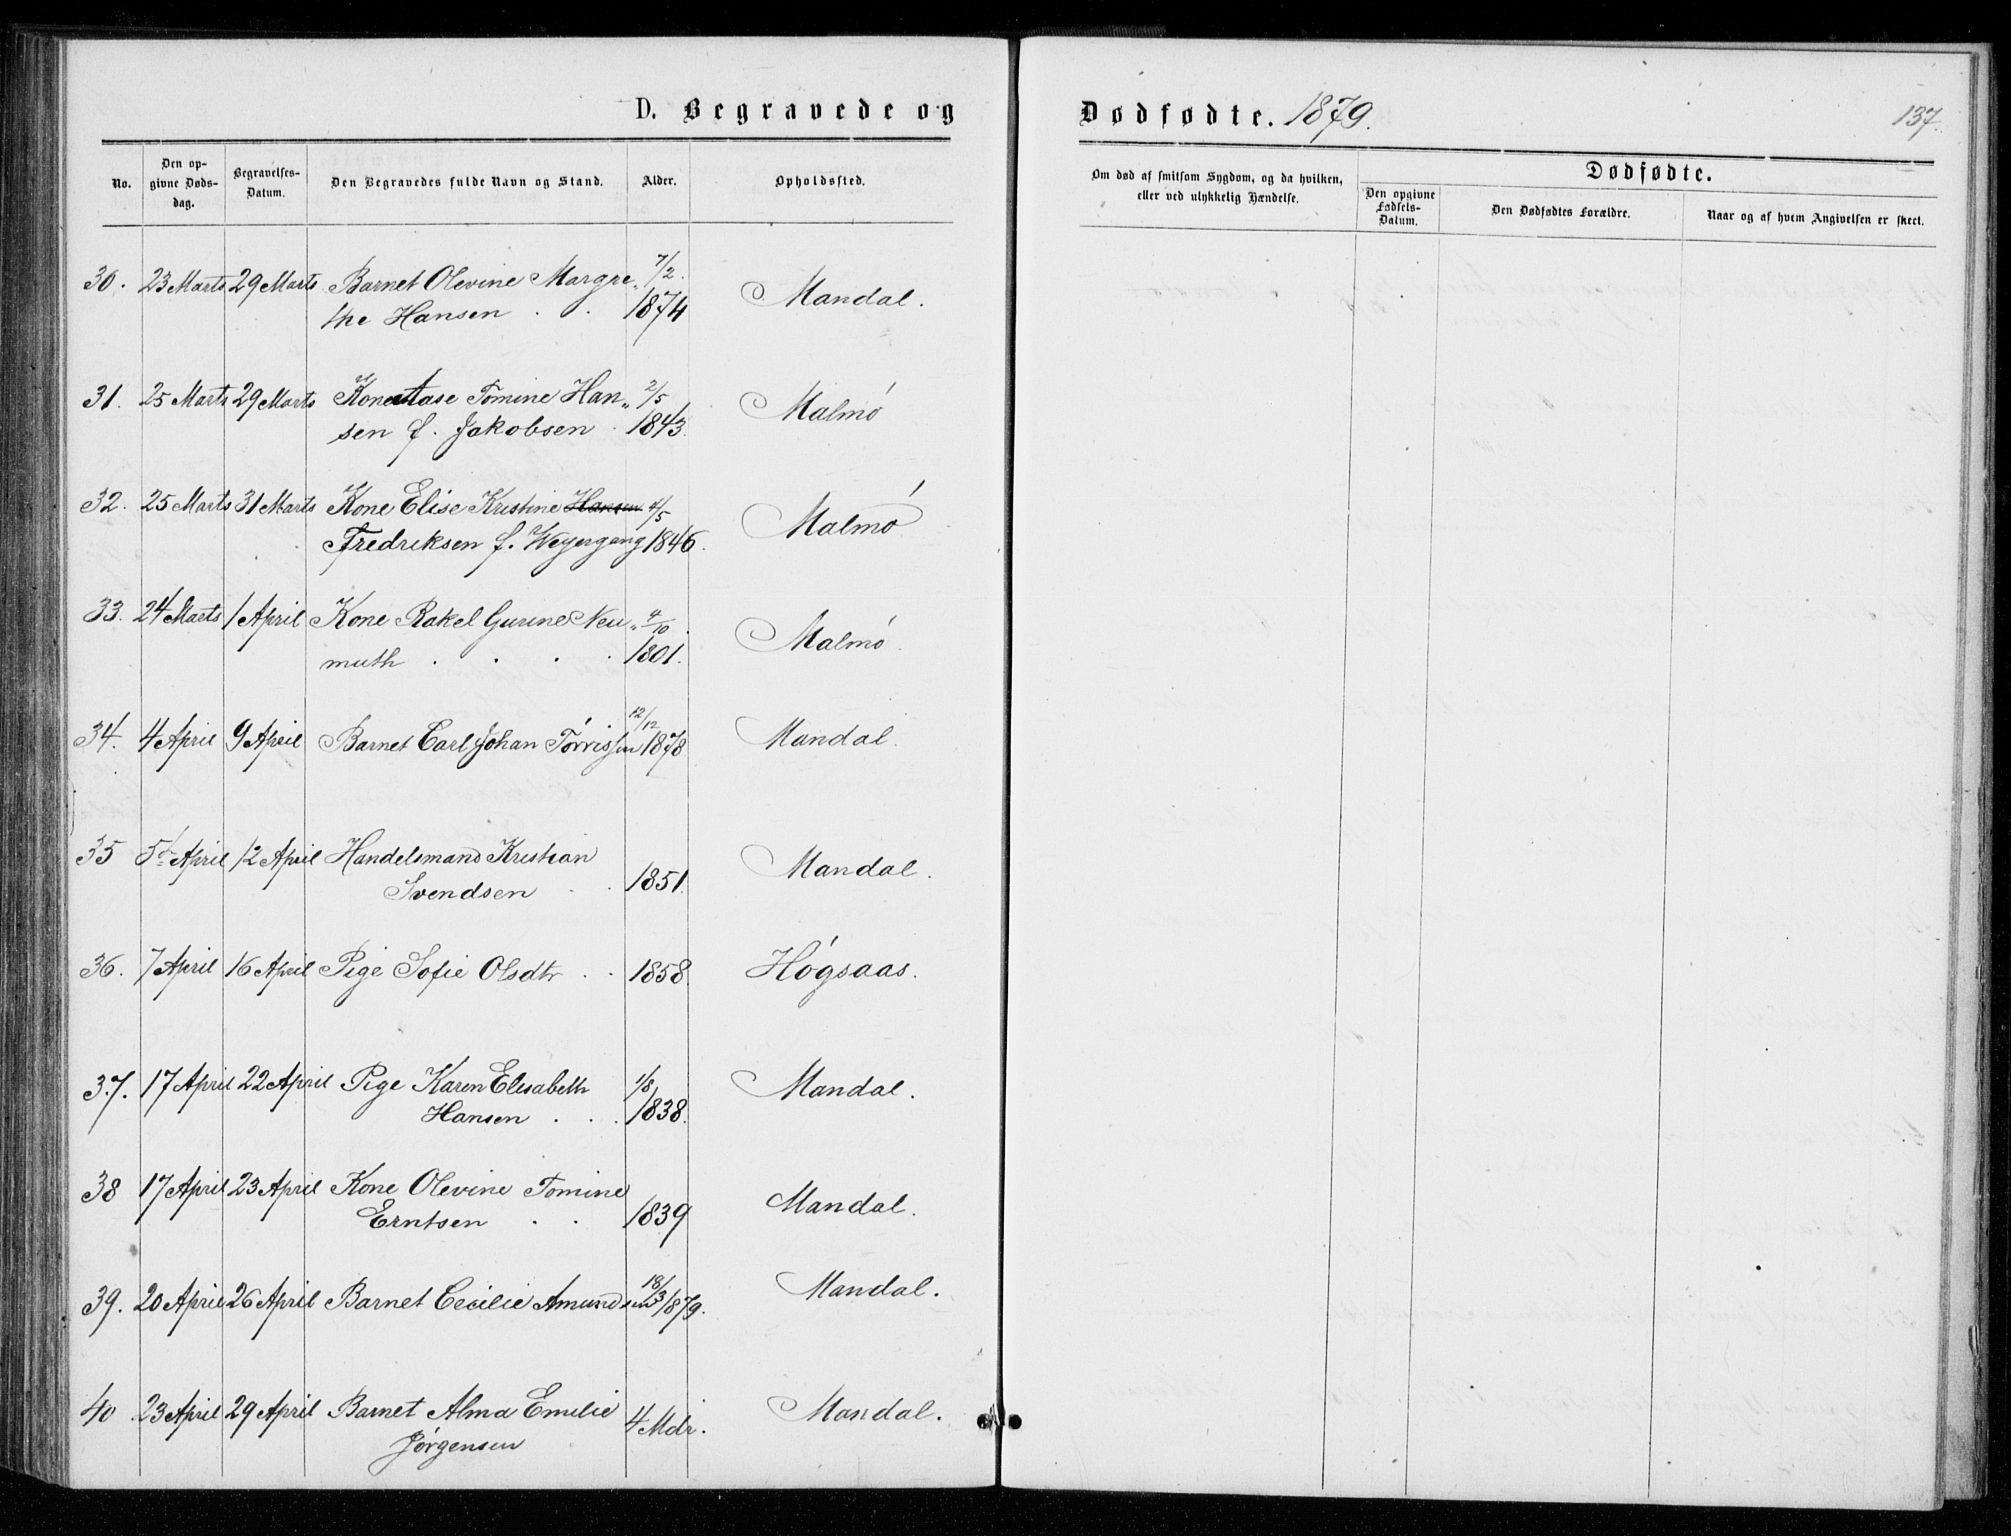 D. Begravede og Dødfødte. 1879. 137.
No.
Den op-
givne Døds-
dag.
Begravelses-
Datum.
Den Begravedes fulde Navn og Stand.
Alder.
Opholdssted.
Om død af smitsom Sygdom, og da hvilken,
eller ved ulykkelig Hændelse.
Dødfødte.
Den opgivne
Fødsels-
Datum.
Den Dødfødtes Forældre.
Naar og af hvem Angivelsen er skeet.
30. 23 Marts 29 Marts Barnet Olevine Margre„ 7/2. Mandal.
the Hansen . . 1874
31. 25 Marts 29 Marts Kone Aase Tomine Han„ 2/5 Malmø
sen f. Jakobsen . 1843.
32. 25 Marts 31 Marts Kone Elise Kristine Hansen 4/5 Malmø
Fredriksen f. Weyergang 1846.
33. 24 Marts 1 April Kone Rakel Gurine Neu„ 9/10 Malmø.
muth . . . . 1801.
34. 4 April 9 April Barnet Carl Johan Tørrissen 12/12 1878 Mandal.
35 5te April 12 April Handelsmand Kristian Mandal.
Svendsen . . 1851.
36. 7 April 16 April Pige Sofie Olsdtr . . 1858. Høgsaas.
37. 17 April 22 April Pige Karen Elisabeth 1/8 Mandal.
Hansen . . . 1838.
38 17 April 23 April Kone Olevine Tomine Mandal.
Erntsen . . 1839
39. 20 April 26 April Barnet Cecilie Amundsen 18/3 1879. Mandal.
40 23 April 29 April Barnet Alma Emilie 4 Mdr. Mandal.
Jørgensen